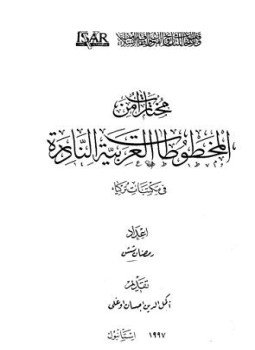 ISAR
مختارات من
المخطوطات العربية النادرة
في مكتبات تركيا
إعداد
رمضان ششن
تقديم
أكمل الدين إحسان أوغلى
١٩٩٧ إستانبول